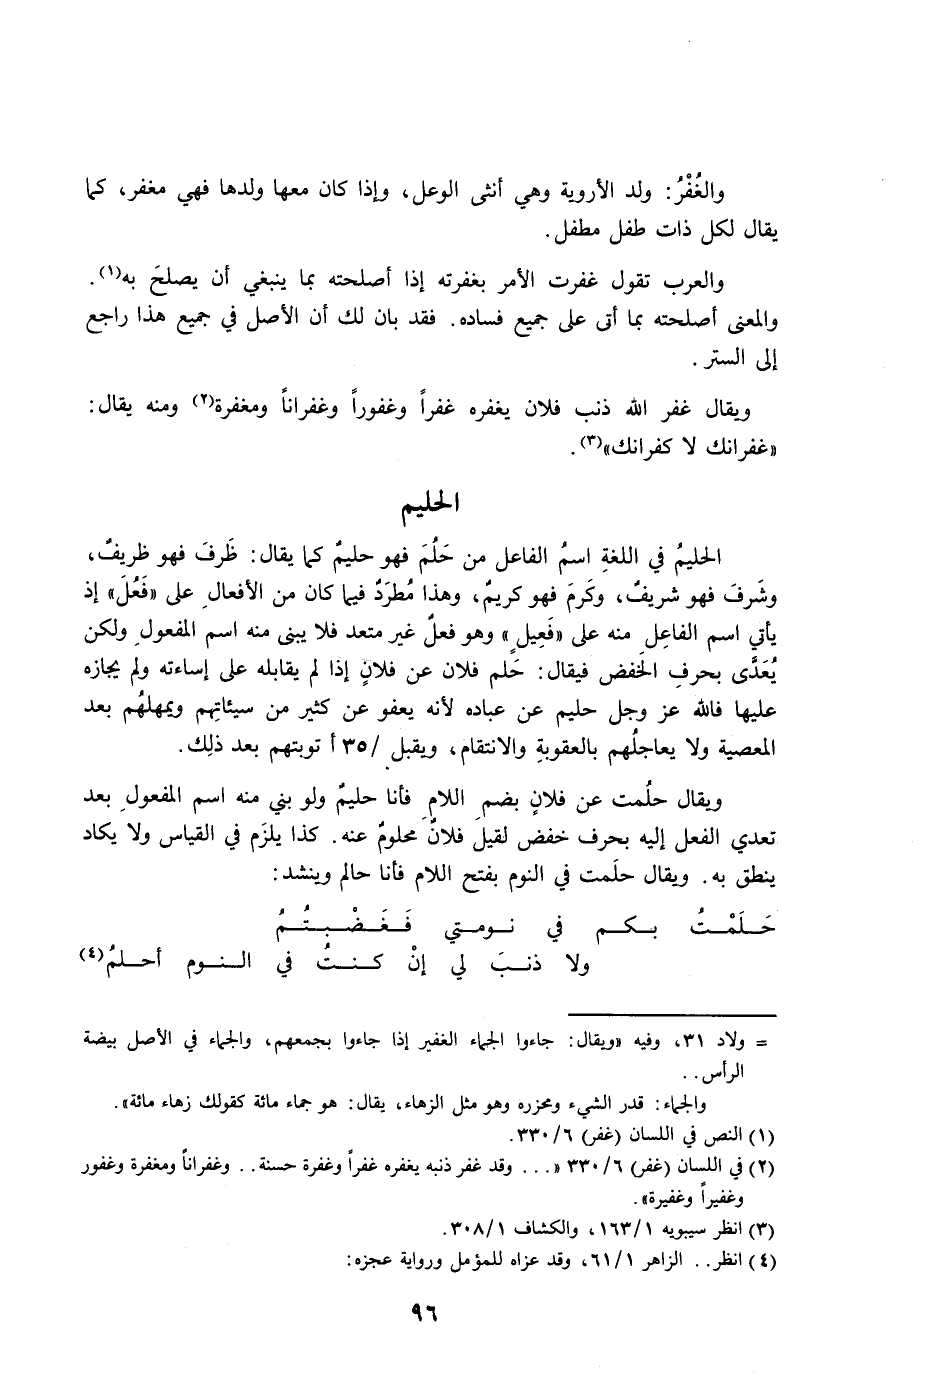 والغُفْرُ: ولد الأروية وهي أنثى الوعل، وإذا كان معها ولدها فهي مغفر، كما
يقال لكل ذات طفل مطفل.
والعرب تقول غفرت الأمر بغفرته إذا أصلحته بما ينبغي أن يصلحَ به(١).
والمعنى أصلحته بما أتى على جميع فساده. فقد بان لك أن الأصل في جميع هذا راجع
إلى الستر.
ويقال غفر الله ذنب فلان يغفره غفراً وغفوراً وغفراناً ومغفرة(٢) ومنه يقال:
«غفرانك لا كفرانك»(٣).
الحليم
الحليمُ في اللغةِ اسمُ الفاعل من حَلُمَ فهو حليمٌ كما يقال: ظَرفَ فهو ظريفٌ،
وشَرفَ فهو شريفٌ، وكَرمَ فهو كريمٌ، وهذا مُطرَدٌ فيما كان من الأفعالِ على «فَعُلَ» إذ
يأتي اسم الفاعِلِ منه على «فَعِيلٍ» وهو فعلٌ غير متعد فلا يبنى منه اسم المفعولِ ولكن
يُعَدَّى بحرفِ الخفضِ فيقال: حَلم فلان عن فلانٍ إذا لم يقابله على إساءته ولم يجازه
عليها فالله عز وجل حليم عن عباده لأنه يعفو عن كثير من سيئاتِهم ويمهلهُم بعد
المعصية ولا يعاجلُهم بالعقوبةِ والانتقام، ويقبل /٣٥ أ توبتهم بعد ذلِك.
ويقال حلُمت عن فلانٍ بضمِ اللامِ فأنا حليمٌ ولو بني منه اسم المفعولِ بعد
تعدي الفعل إليه بحرف خفض لقيلَ فلانٌ محلومٌ عنه. كذا يلزَم في القياس ولا يكاد
ينطق به. ويقال حلَمت في النوم بفتح اللام فأنا حالم وينشد:
حَلَمْتُ بكم في نومتي فَغَضْبتُمُ
ولا ذنبَ لي إنْ كنتُ في النوم أحلمُ(٤)
= ولاد ٣١، وفيه «ويقال: جاءوا الجماء الغفير إذا جاءوا بجمعهم، والجماء في الأصل بيضة
الرأس..
والجماء: قدر الشيء ومحزره وهو مثل الزهاء، يقال: هو جماء مائة كقولك زهاء مائة».
(١) النص في اللسان (غفر) ٣٣٠/٦.
(٢) في اللسان (غفر) ٣٣٠/٦ «... وقد غفر ذنبه يغفره غفراً وغفرة حسنة.. وغفراناً ومغفرة وغفور
وغفيراً وغفيرة».
(٣) انظر سيبويه ١٦٣/١، والكشاف ٣٠٨/١.
(٤) انظر.. الزاهر ٦١/١، وقد عزاه للمؤمل ورواية عجزه:
٩٦